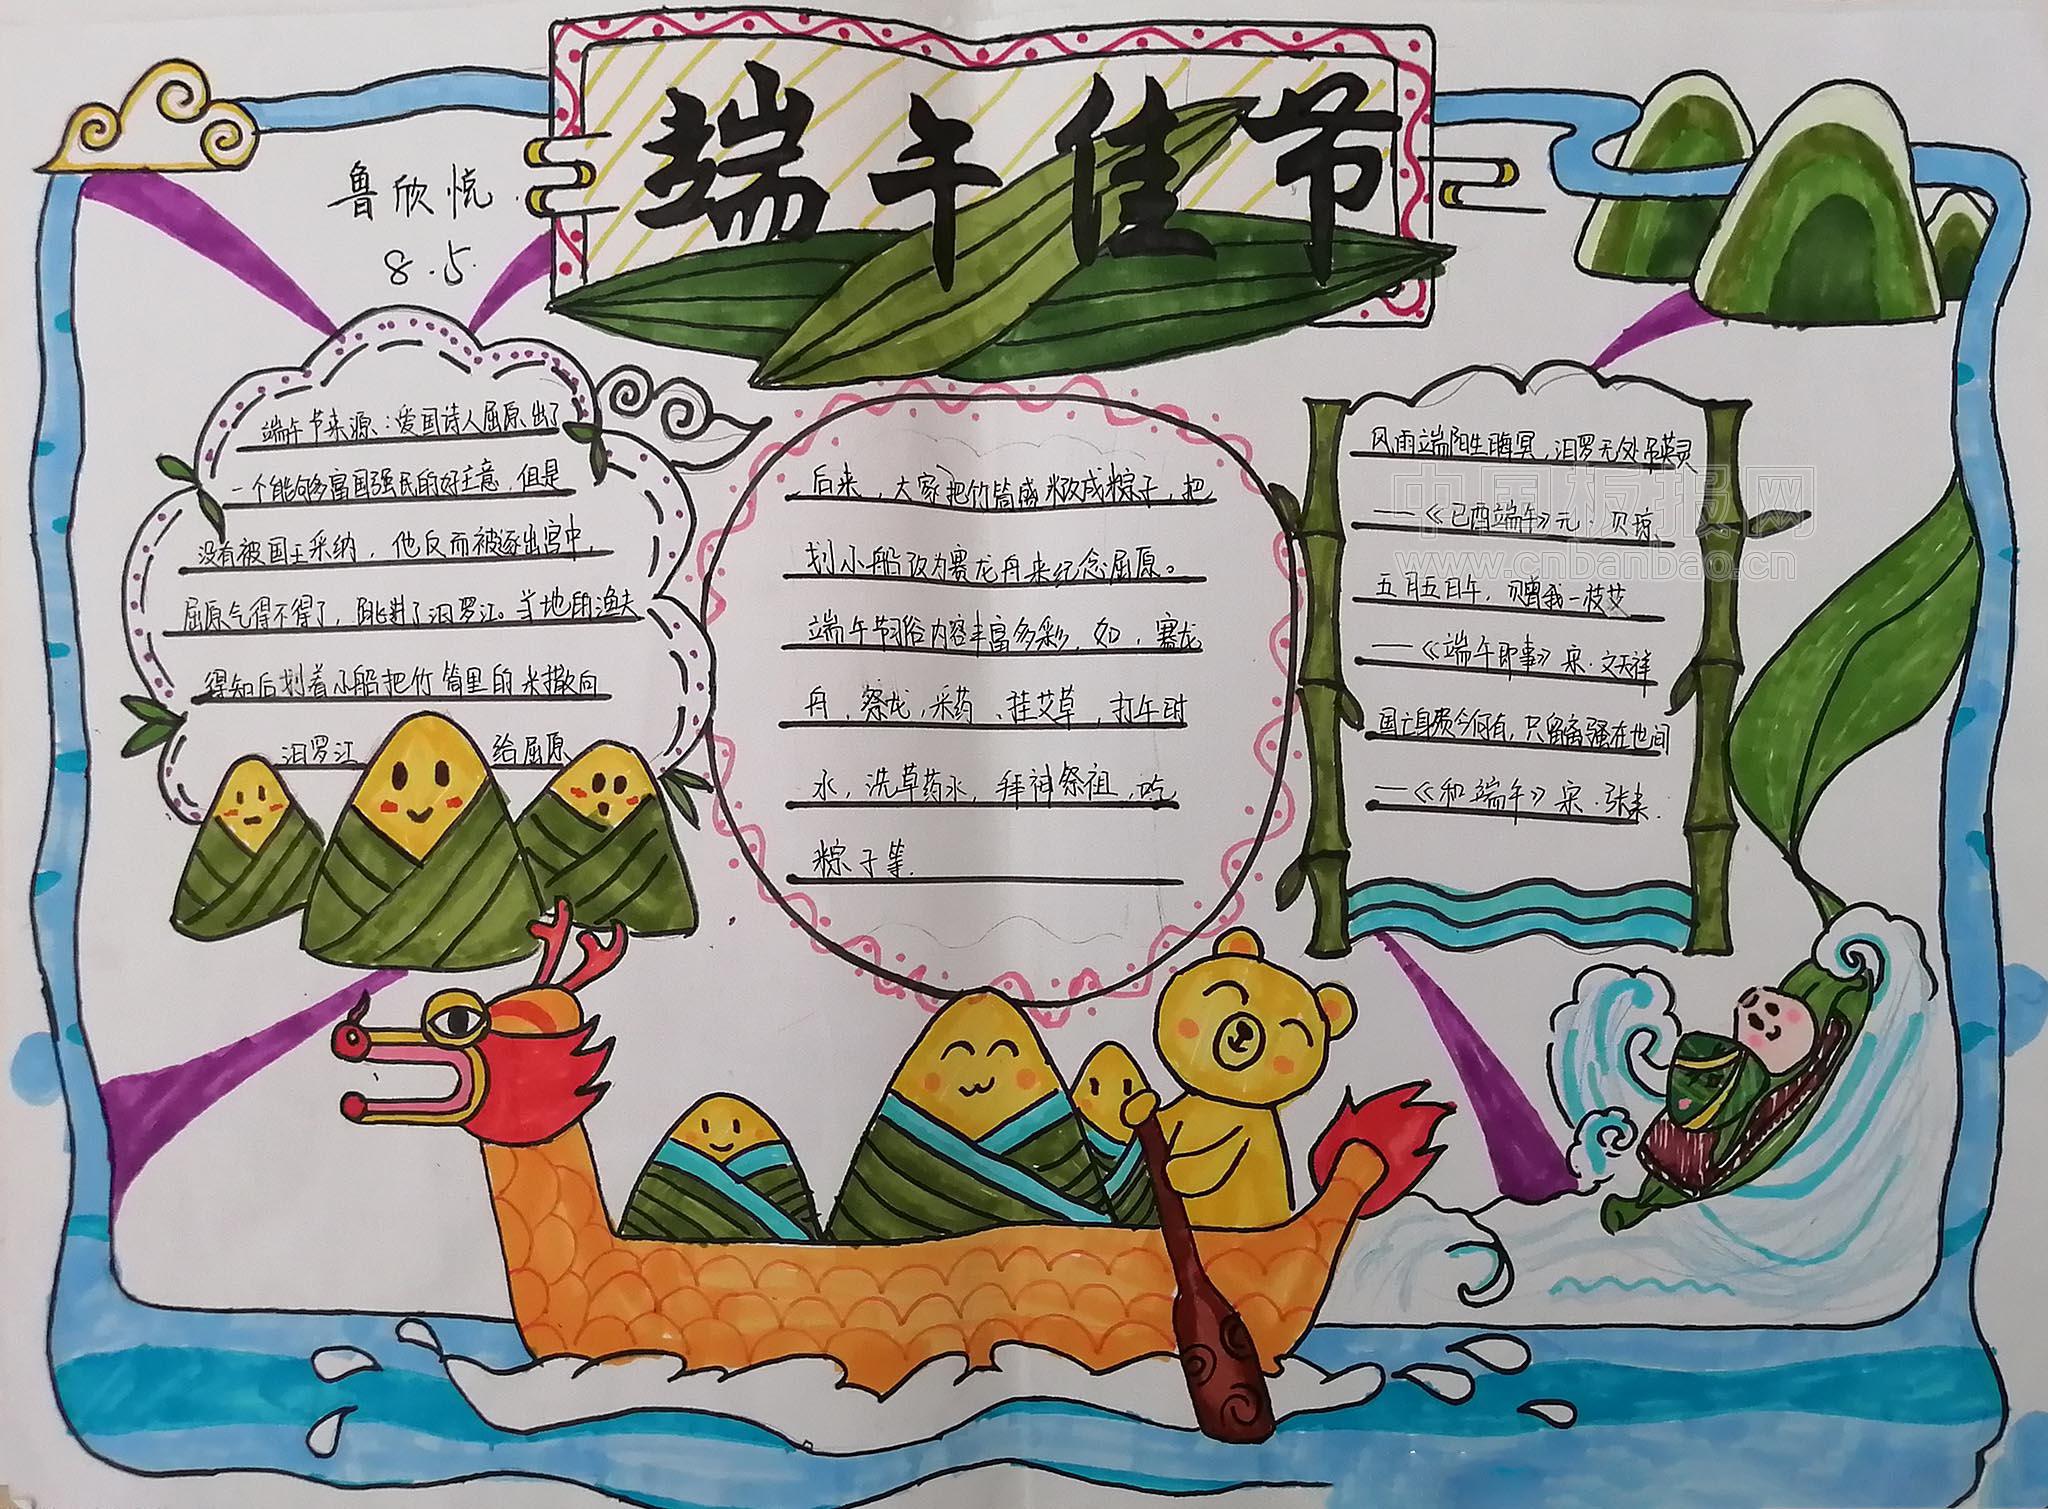 端午佳节
鲁欣悦
8.5.
端午节来源:爱国诗人屈原出了
一个能够富国强民的好主意,但是
没有被国王采纳,他反而被逐出宫中,
屈原气得不得了,跳进了汨罗江。当地的渔夫
得知后划着小船把竹筒里的米撒向
汨罗江 给屈原
后来,大家把竹筒盛米改成粽子,把
划小船改为赛龙舟来纪念屈原。
端午节习俗内容丰富多彩,如,赛龙
舟,祭龙,采药、挂艾草,打午时
水,洗草药水,拜神祭祖,吃
粽子等.
风雨端阳生晦冥,汨罗无处吊英灵
——《己酉端午》元·贝琼
五月五日午,赠我一枝艾
——《端午即事》宋·文天祥
国亡身殒今何有,只留离骚在世间
——《和端午》宋·张耒.
中国板报网
www.cnbanbao.cn